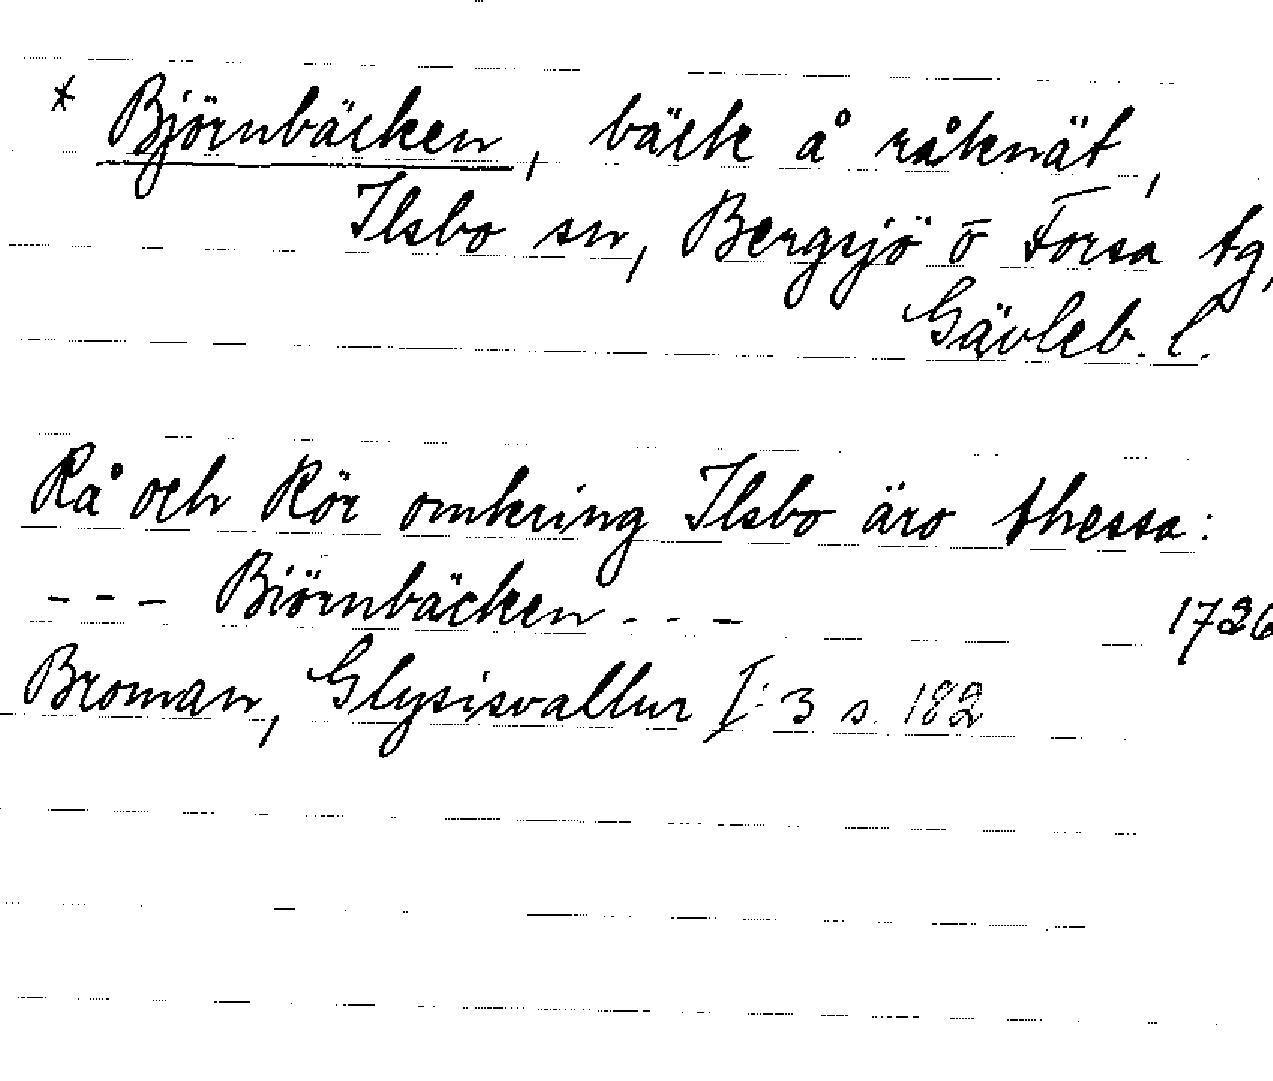 * Björnbäcken, bäck å råknät,
Ilsbo sn, Bergsjö o Forsa tg,
Gävleb. l.
Rå och Rör omkring Ilsbo äro thessa:
- - - Biörnbäcken - - - 1726
Broman, Glysisvallur I: 3 s. 182